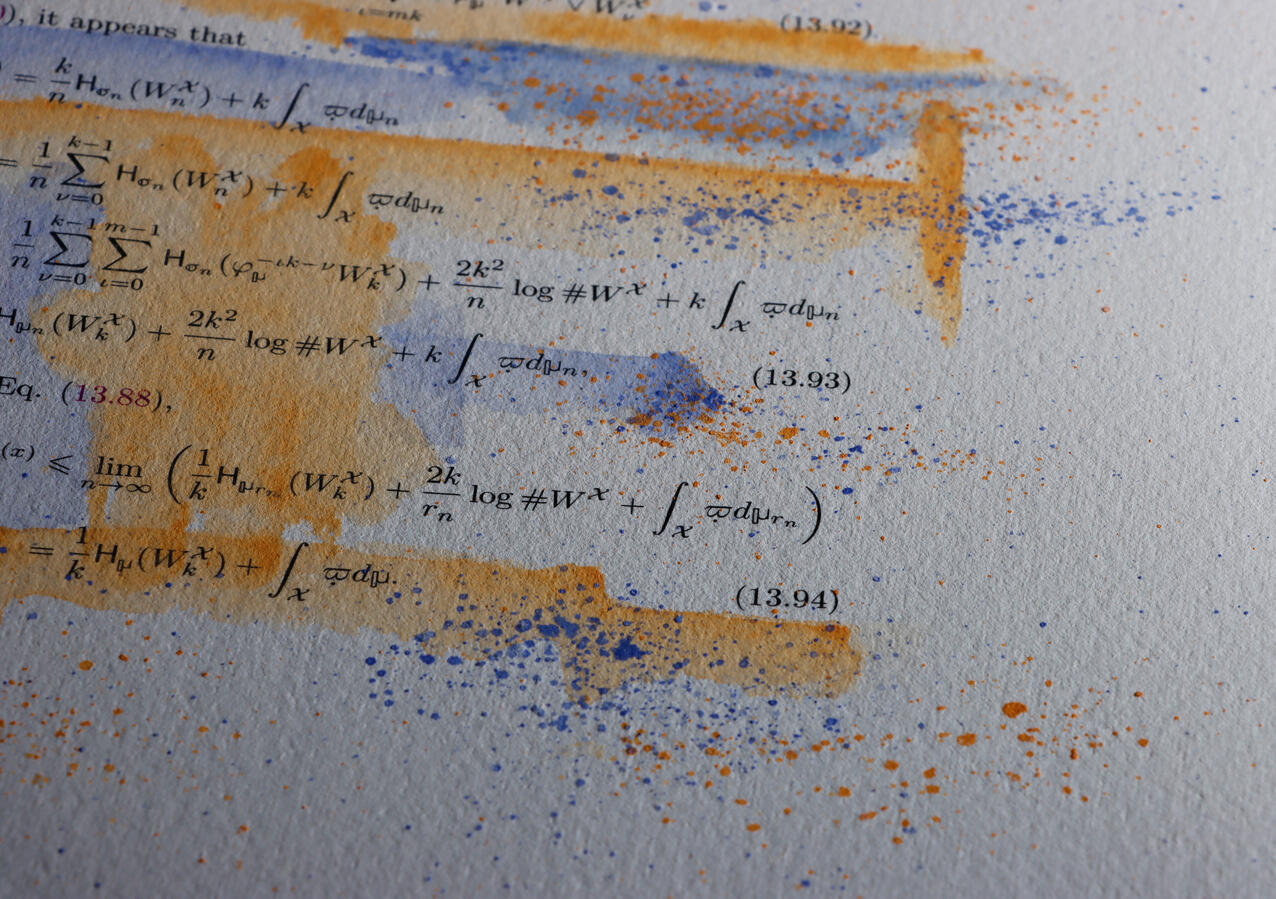 (13.92)
), it appears that
) = \frac{k}{n} H_{σ_n}(W_n^𝒳) + k ∫_𝒳 ϖd𝕡_n
= \frac{1}{n} \sum_{ν=0}^{k−1} H_{σ_n}(W_n^𝒳) + k ∫_𝒳 ϖd𝕡_n
\frac{1}{n} \sum_{ν=0}^{k−1} \sum_{ι=0}^{m−1} H_{σ_n}(φ_𝕡^{−ιk−ν} W_k^𝒳) + \frac{2k^2}{n} log #W^𝒳 + k ∫_𝒳 ϖd𝕡_n
H_{𝕡_n}(W_k^𝒳) + \frac{2k^2}{n} log #W^𝒳 + k ∫_𝒳 ϖd𝕡_n, (13.93)
Eq. (13.88),
(x) ⩽ \lim_{n→∞} ( \frac{1}{k} H_{𝕡_{r_n}}(W_k^𝒳) + \frac{2k}{r_n} log #W^𝒳 + ∫_𝒳 ϖd𝕡_{r_n} )
= \frac{1}{k} H_𝕡(W_k^𝒳) + ∫_𝒳 ϖd𝕡. (13.94)